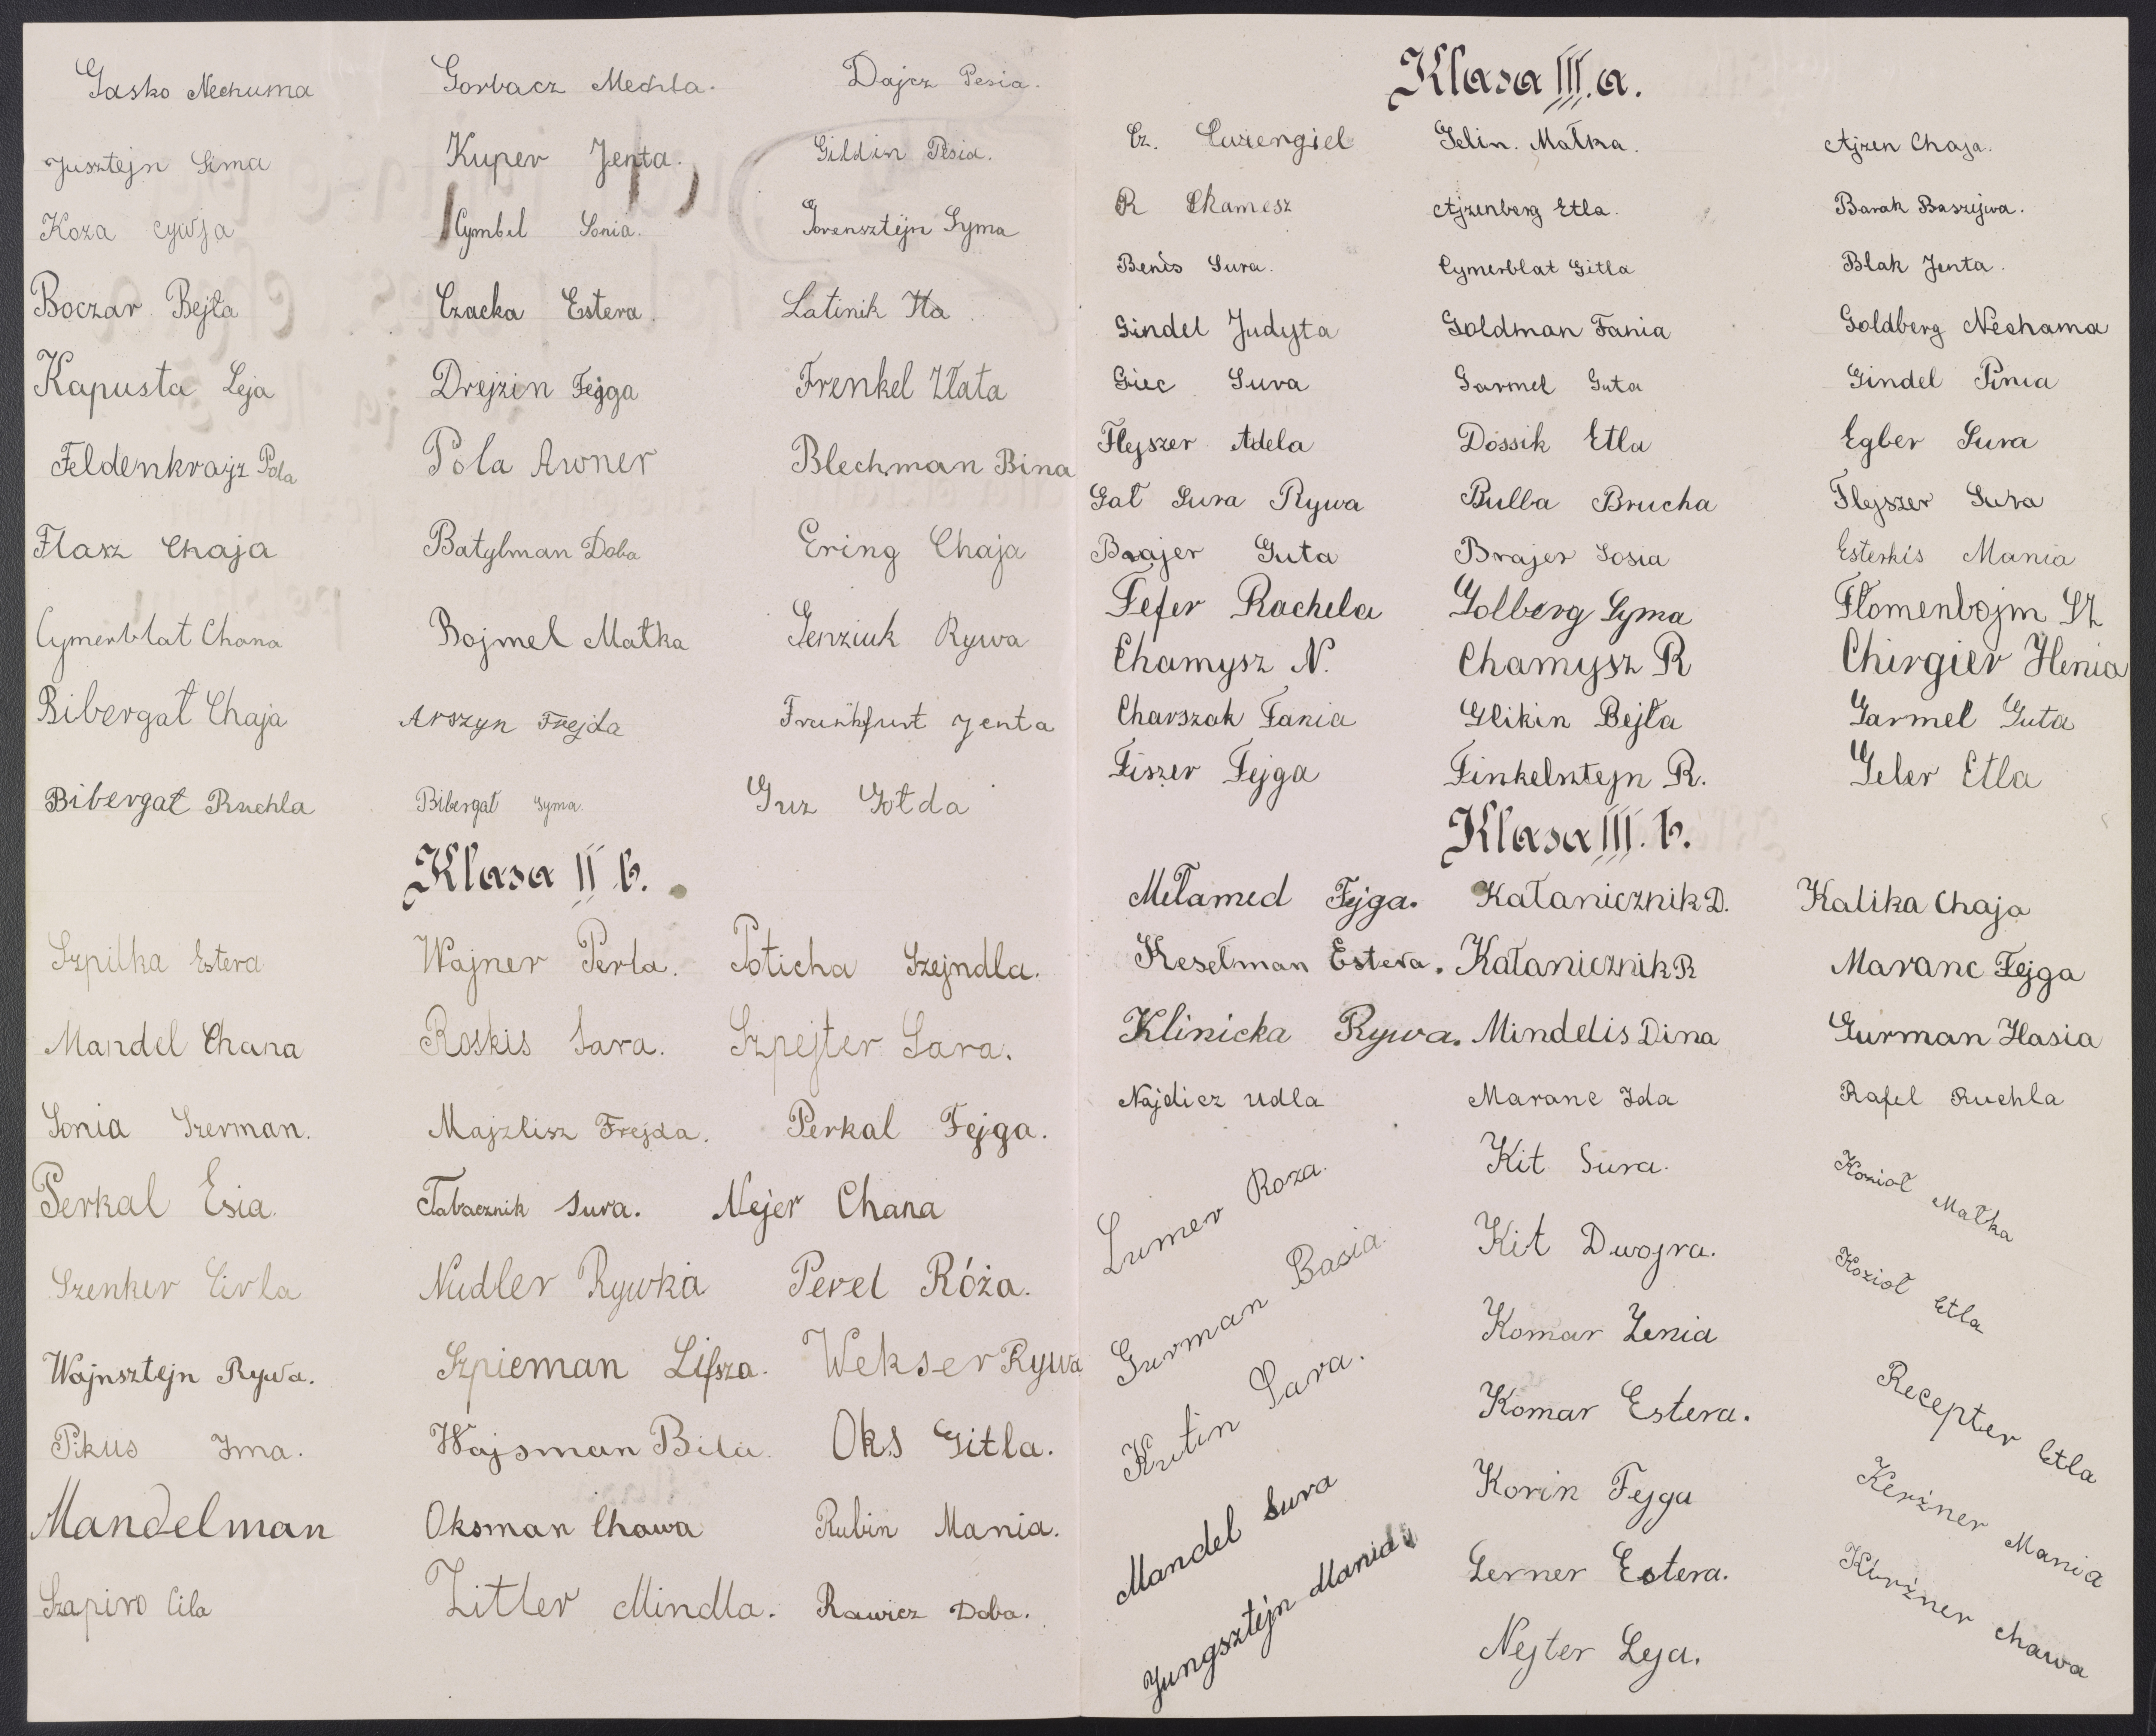 Gasko Nechuma Gorbacz Mechla. Dajcz Pesia.
Jusztejn Sima Kuper Jenta. Gildin Pesia.
Koza Cywja Cymbel Sonia. Gorensztejn Syma
Boczar Bejła Czacka Estera. Latinik Ita
Kapusta Leja Drejzin Fejga Frenkel Złata
Feldenkrajz Pola Pola Awner Blechman Bina
Flasz Chaja Batylman Doba Ering Chaja
Cymerblat Chana Bojmel Małka Genziuk Rywa
Bibergał Chaja Arszyn Frejda Frankfurt Jenta
Bibergał Ruchla Bibergał Syma. Guz Gołda
Klasa II b.
Szpilka Estera Wajner Perla. Poticha Szejndla.
Mandel Chana Roskis Sara. Szpejter Sara.
Sonia Szerman. Majzlisz Frejda. Perkal Fejga.
Perkal Esia. Tabacznik Sura. Mejer Chana
Szenker Cirla Nudler Rywka Perel Róża.
Wajnsztejn Rywa. Szpieman Lifsza. Wekser Rywa
Pikus Irma. Wajsman Bila. Oks Gitla.
Mandelman Oksman Chawa Rubin Mania.
Szapiro Cila Zitler Mindla. Rawicz Doba.
Klasa III.a.
Cz. Gelin. Małka. Ajzen Chaja.
R Chamesz Ajzenberg Etla. Barak Baszejwa.
Benis Sura. Cymerblat Gitla Blak Jenta.
Gindel Judyta Goldman Fania Goldberg Nechama
Giec Sura Garmel Guta Gindel Pinia
Flejszer Adela Dossik Etla Egber Sura
Gał Sura Rywa Bulba Brucha Flejszer Sura
Brajer Guta Brajer Sosia Esterkis Mania
Fefer Rachela Golberg Syma Flomenbojm Sz
Chamysz N. Chamysz R Chirgier Henia
Charszak Fania Glikin Bejła Garmel Guta
Fiszer Fejga Finkelsztejn R. Geler Etla
Klasa III. b.
Mełamed Fejga. Kałanicznik D. Kalika Chaja
Keselman Estera. Kałanicznik R Maranc Fejga
Klinicka Rywa. Mindelis Dina Gurman Hasia
Najdicz Udla Maranc Ida Rafel Ruchla
Lumer Roza. Kit Sura. Kozioł Małka
Gurman Basia. Kit Dwojra. Kozioł Etla
Kutin Sara. Komar Zenia Recepter Etla
Mandel Sura Komar Estera. Kerżner Mania
Jungsztejn Mania Korin Fejga Kerżner Chawa
Lerner Estera.
Nejter Leja.